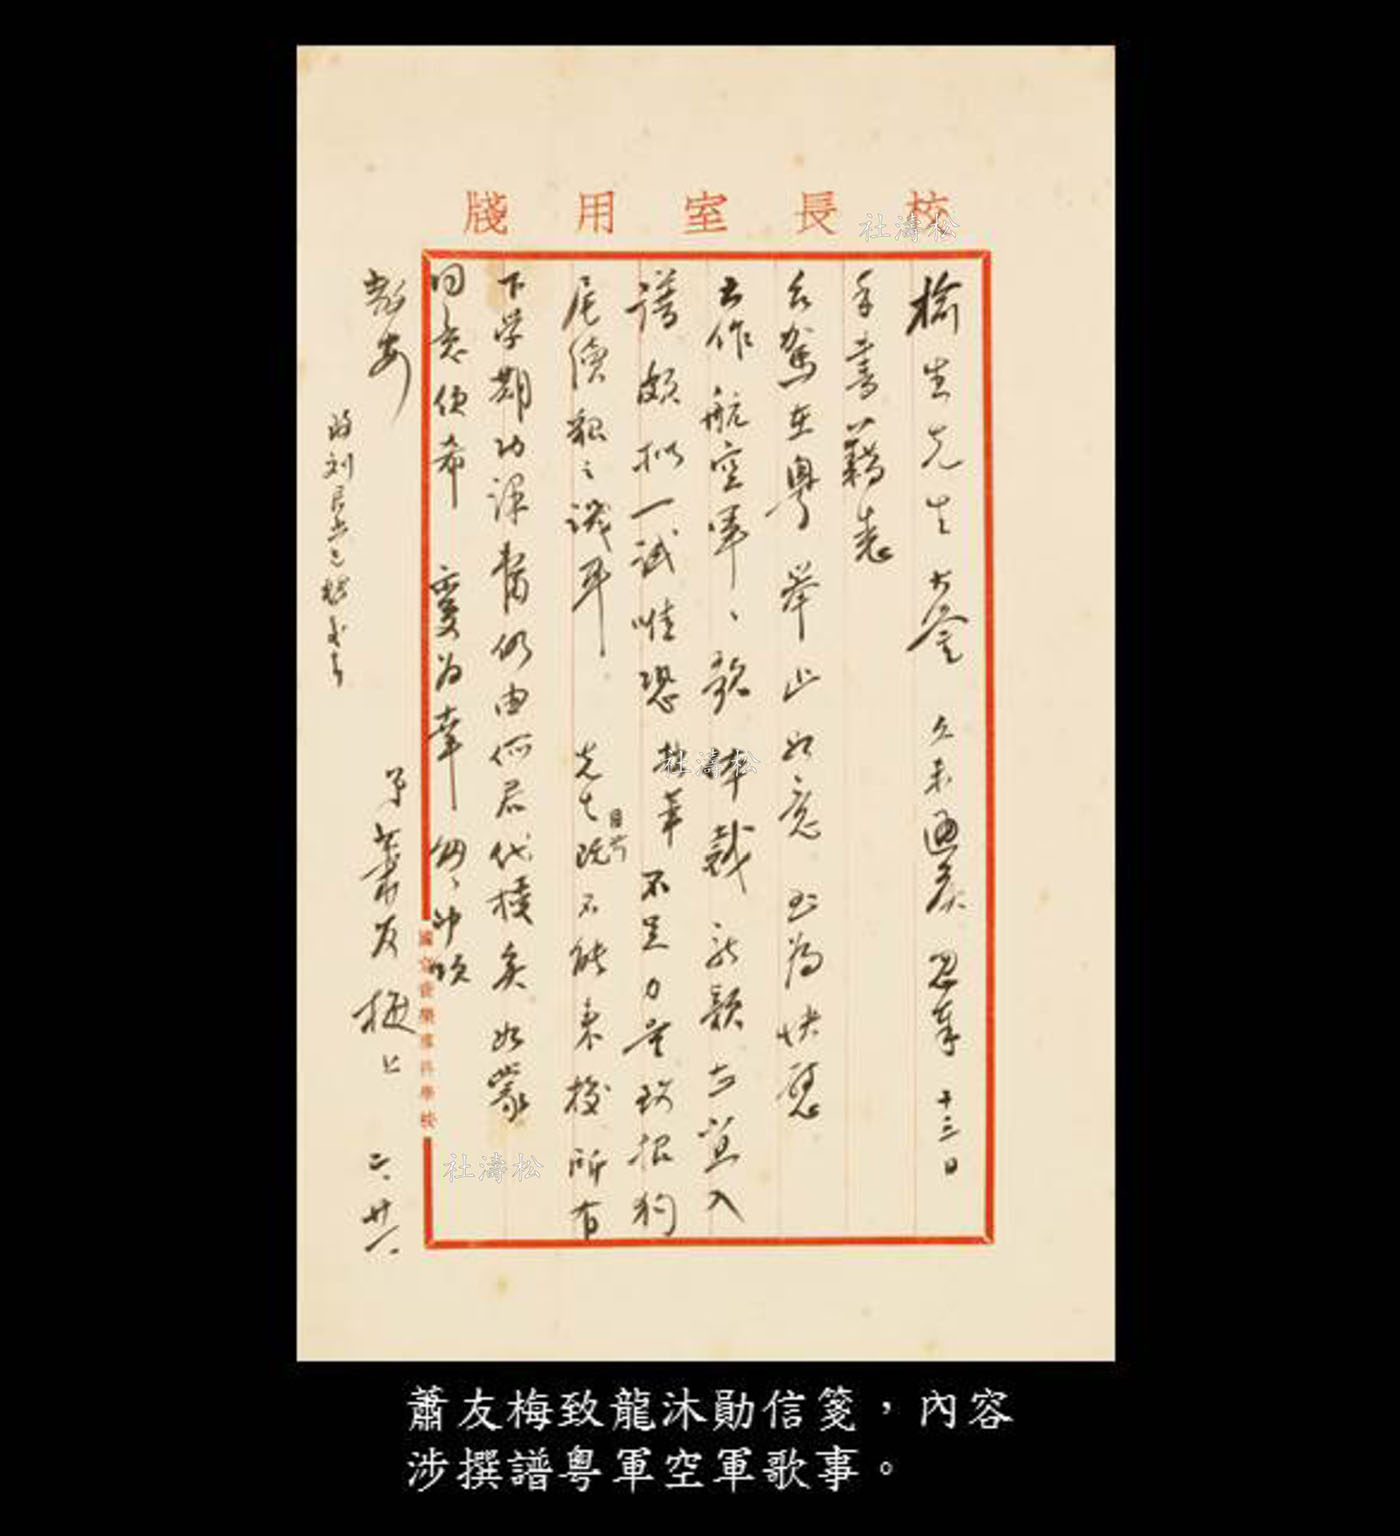 校長室用牋
榆生先生大鑒 久未通候 忽奉 十三日
手書藉悉
台駕在粵舉止如意 至為快慰
大作航空軍、歌體裁新穎 亦宜入
譜 頗擬一試 惟恐 才華不足力量 致招狗
尾續貂之譏耳 先生既目前不能來校 所有
下学期功課 暫仍由何君代授矣 如蒙
同意便希 覆為幸 匆匆 即頌
教安
弟蕭友梅上 六、廿一、
國立音樂專科學校
松濤社
松濤社
松濤社
蕭友梅致龍沐勛信箋，內容
涉撰譜粵軍空軍歌事。